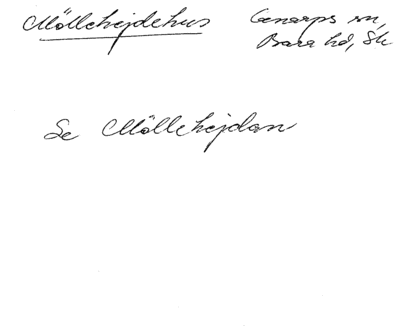 Möllehejdehus Genarps sn,
Bara hd, Sk
Se Möllehejdan